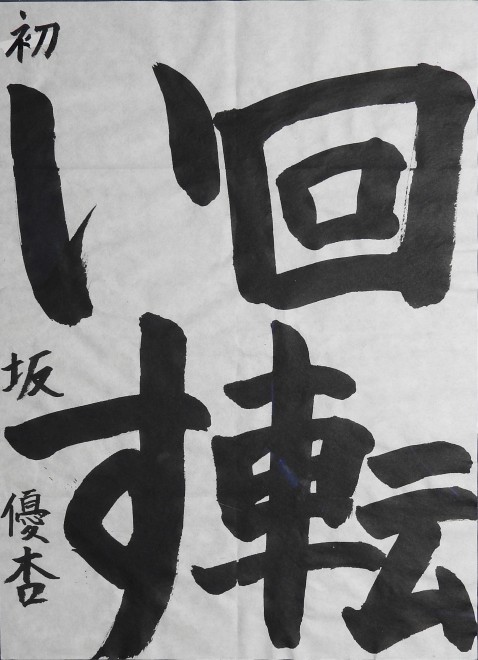 回転
いす
初 坂 優杏